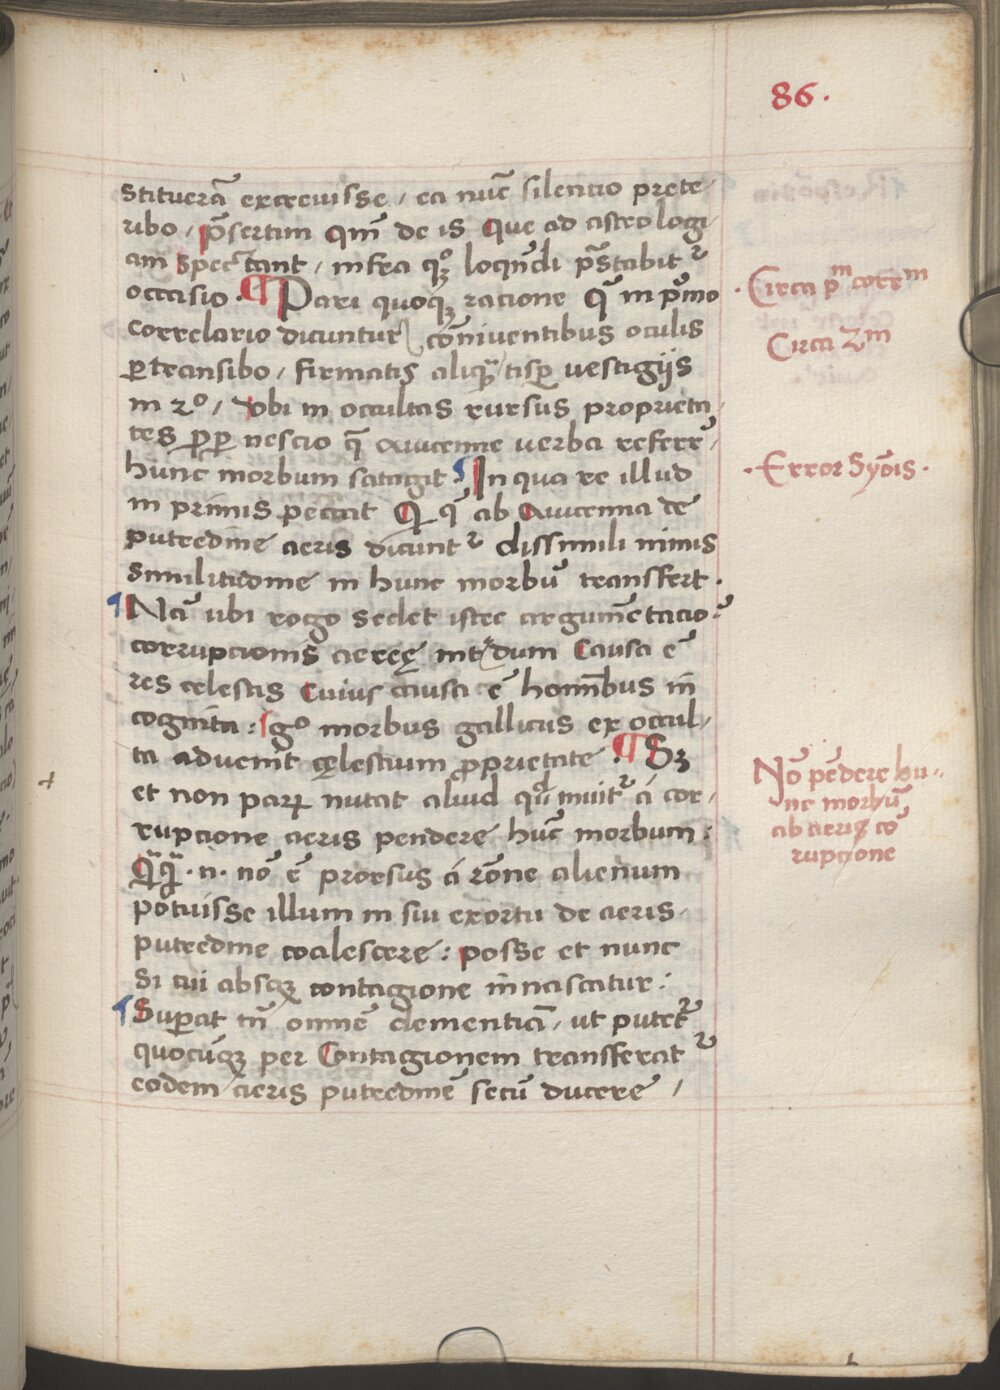 86.
stituerā excreuisse / ea nūc silencio prete/
ribo / p̄sertim qm̄ de is que ad astrologi/
am spectant / infra qꝫ loqn̄di p̄stabit᷑
occasio · ¶ Pari quoqꝫ racione q̄ in p̄mo
correlario dicuntur cōniuentibus oculis
ꝑtransibo / firmatis aliqͣtisꝑ uestigijs
in 2º / vbi in occultas rursus proprieta
tes ꝓꝑ nescio q̄ auicenne uerba referr̄
hunc morbum satagit ¶ In qua re illud
in primis peccat Q q̄ ab Auicenna de
putredine aeris dicunt᷑ dissimili nimis
similitudine in hunc morbū transfert ·
¶ Nā ubi rogo sedet istec argumētacio?
corrupcionis aereę int᷑dum Causa ē
res celestis Cuius causa ē hominibus in
cognita : igº morbus gallicus ex occul/
ta aduenit cęlestium ꝓprietate ¶ Sꝫ
et non parꝫ nutat aliud qd̓ innit᷑ á cor/
rupcione aeris pendere hūc morbum :
Qͣqͣ · n · nō ē prorsus á rōne alienum
potuisse illum in sui exortu de aeris
putredine coalescere : posse et nunc
si cui absqꝫ contagione innascatur :
¶ Suꝑat tn̄ omnē dementiā / ut putet᷑
quocūqꝫ per Contagionem transferat᷑
eodem aeris putredinē secū ducere /
· Circa pᵐ corrᵐ
Circa 2ᵐ
· Error Syōis ·
Nō pēdere hu‑
nc morbū
ab aeris co
rupcione